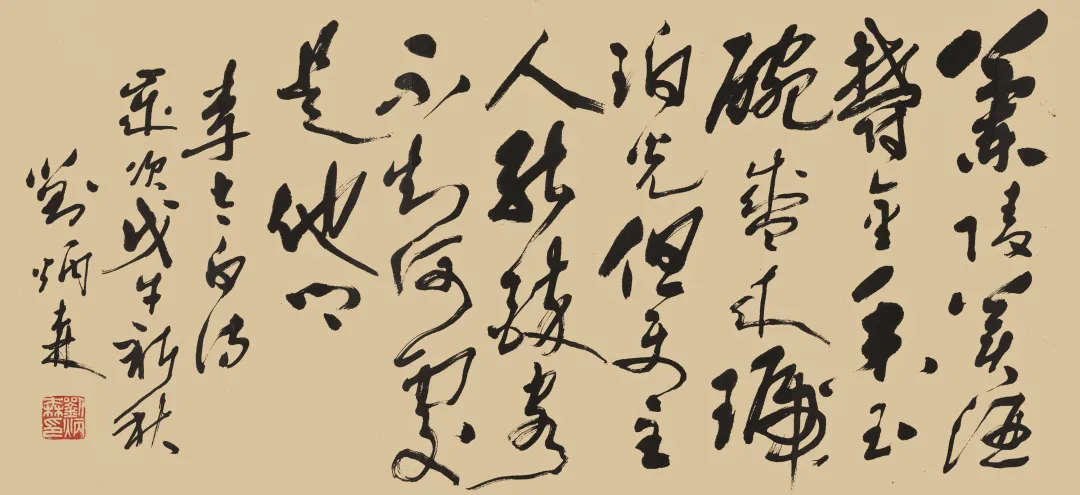 蘭陵美酒
鬱金香玉
碗盛來琥
珀光但使主
人能醉客
不知何處
是他鄉
李太白詩
歲次戊午新秋
劉炳森
劉炳森印